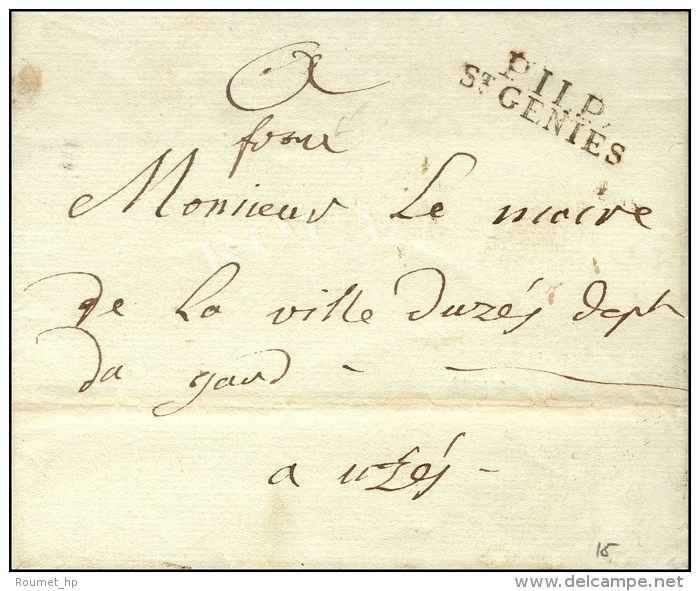 A
P.11.P.
ST GENIES
Monsieur Le maire
De La ville Duzés Dept
Du gard -
a uzés -
15
Roumet_hp
delcampe.net